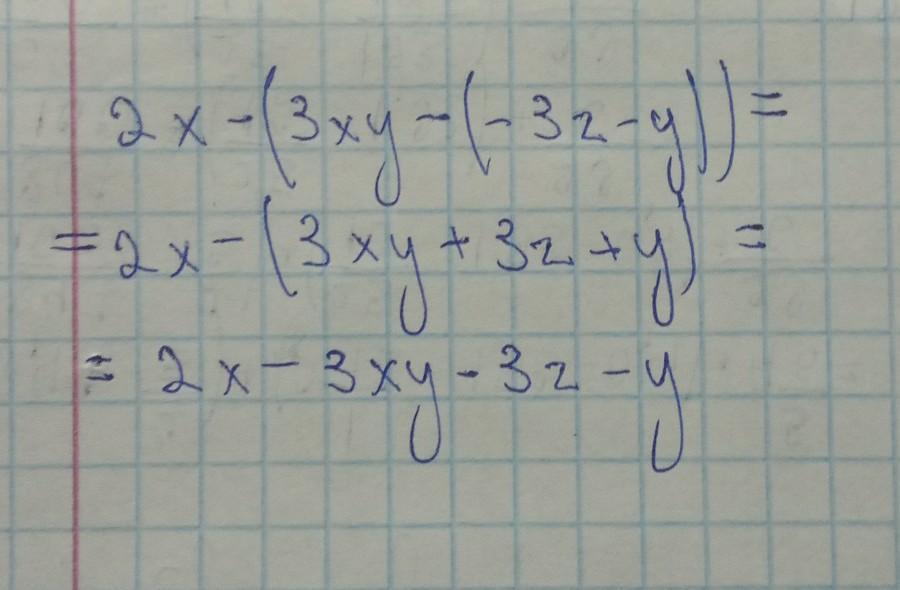 2x-(3xy-(-3z-y))=
=2x-(3xy+3z+y)=
=2x-3xy-3z-y